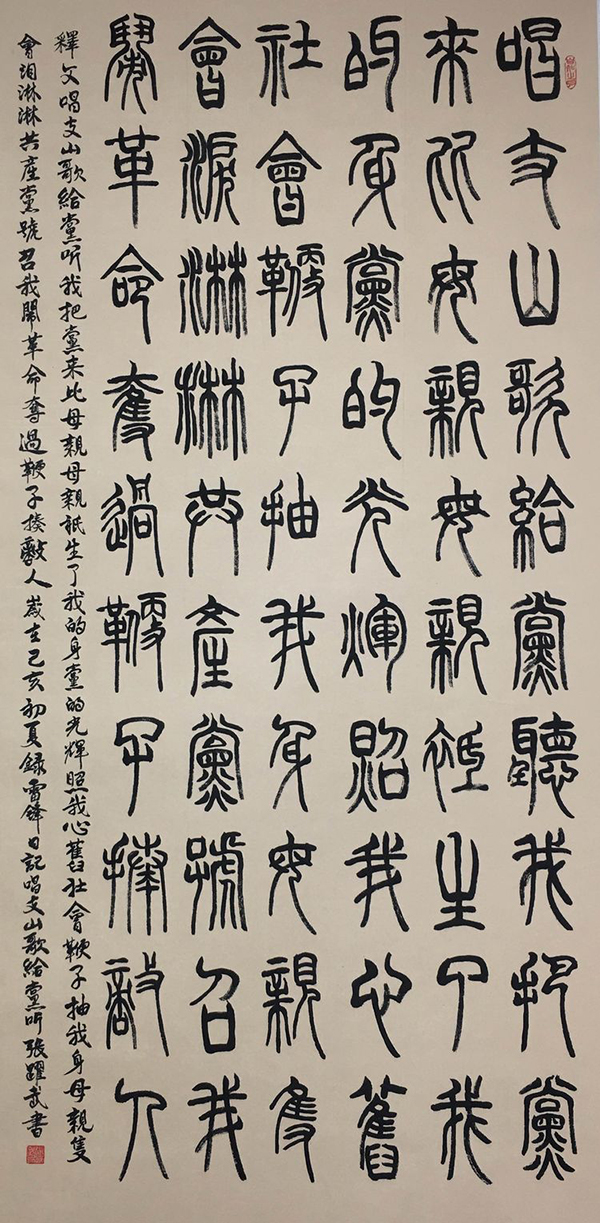 唱支山歌給黨聽我把黨
來比母親母親祇生了我
的身黨的光輝照我心舊
社會鞭子抽我身母親隻
會淚淋淋共產黨號召我
鬧革命奪過鞭子揍敵人
釋文唱支山歌給黨听我把黨来比母親母親祇生了我的身黨的光輝照我心舊社會鞭子抽我身母親隻
會泪淋淋共產黨號召我鬧革命奪過鞭子揍敵人歲在己亥初夏録雷鋒日記唱支山歌給黨听張躍武書